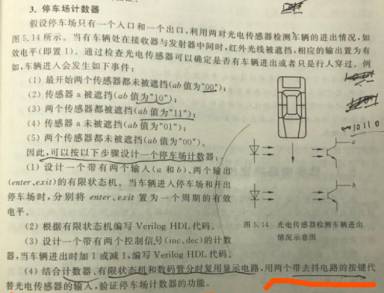 3. 停车场计数器
假设停车场只有一个入口和一个出口,利用两对光电传感器检测车辆的进出情况,如
图 5.14 所示。当有车辆处在接收器与发射器中间时,红外光线被遮挡,相应的输出置为有
效电平(即置 1)。通过检查光电传感器可以确定是否有车辆进出或者只是行人穿过。例
如,车辆进入会发生如下事件:
(1) 最开始两个传感器都未被遮挡(ab 值为"00");
(2) 传感器 a 被遮挡(ab 值为"10");
(3) 两个传感器都被遮挡(ab 值为"11");
(4) 传感器 a 未被遮挡(ab 值为"01");
(5) 两个传感器都未被遮挡(ab 值为"00")。
因此,可以按以下步骤设计一个停车场计数器:
(1) 设计一个带有两个输入(a 和 b)、两个输出
(enter,exit)的有限状态机。当车辆进入停车场和开出
停车场时,分别将 enter、exit 置为一个周期的有效
电平。
(2) 根据有限状态机编写 Verilog HDL 代码。
(3) 设计一个带有两个控制信号(inc,dec)的计数
器,当车辆进出时加 1 或减 1,编写 Verilog HDL 代码。
a
b
图 5.14 光电传感器检测车辆进出
情况示意图
(4) 结合计数器、有限状态机和数码管分时复用显示电路,用两个带去抖电路的按键代
替光电传感器的输入,验证停车场计数器的功能。